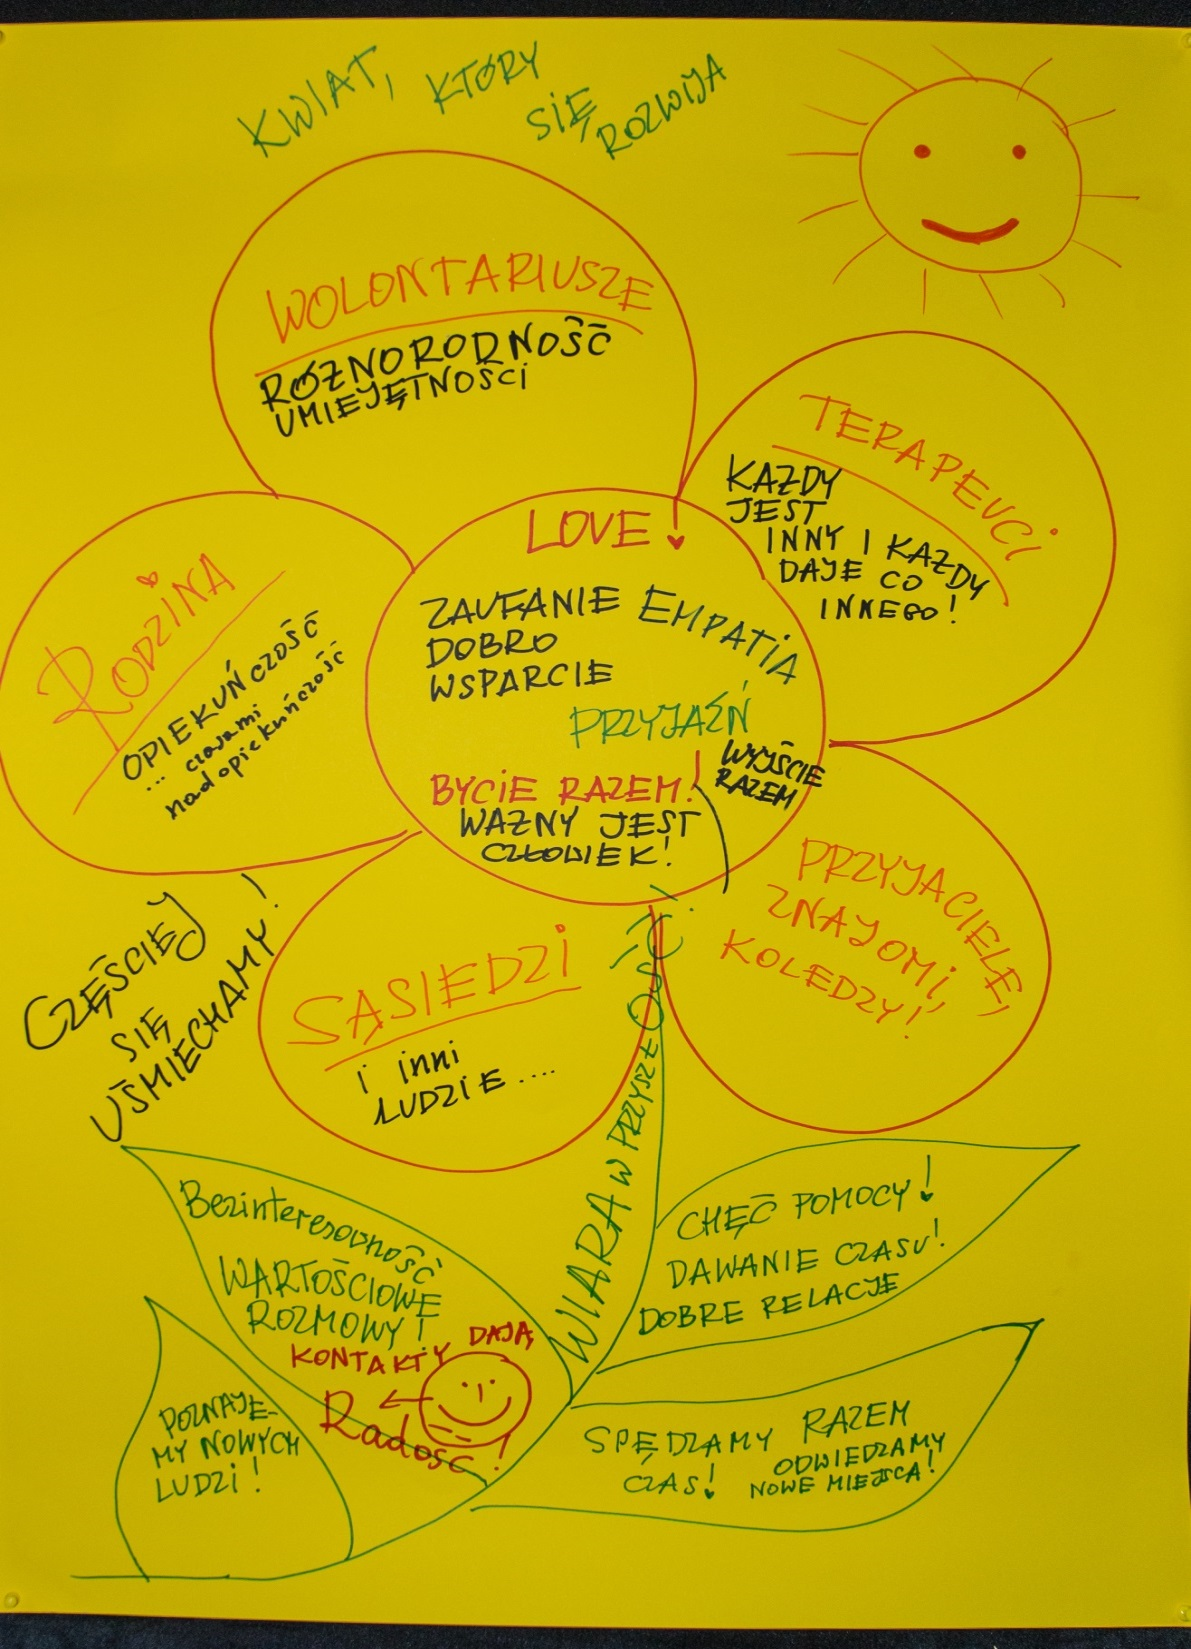 KWIAT, KTÓRY
SIĘ
ROZWIJA
WOLONTARIUSZE
RÓŻNORODNOŚĆ
UMIEJĘTNOŚCI
TERAPEUCI
KAŻDY
JEST
INNY I KAŻDY
DAJE CO
INNEGO!
LOVE!
ZAUFANIE EMPATIA
DOBRO
WSPARCIE
PRZYJAŹŃ
BYCIE RAZEM!
WAŻNY JEST
CZŁOWIEK!
WYJŚCIE
RAZEM
RODZINA
OPIEKUŃCZOŚĆ
... czasami
nadopiekuńczość
PRZYJACIELE,
ZNAJOMI,
KOLEDZY!
SĄSIEDZI
i inni
LUDZIE ....
CZĘŚCIEJ
SIĘ
UŚMIECHAMY!
WIARA W PRZYSZŁOŚĆ!
Bezinteresowność
WARTOŚCIOWE
ROZMOWY!
KONTAKTY DAJĄ
Radość!
CHĘĆ POMOCY!
DAWANIE CZASU!
DOBRE RELACJE
POZNAJE-
MY NOWYCH
LUDZI!
SPĘDZAMY RAZEM
CZAS!
ODWIEDZAMY
NOWE MIEJSCA!